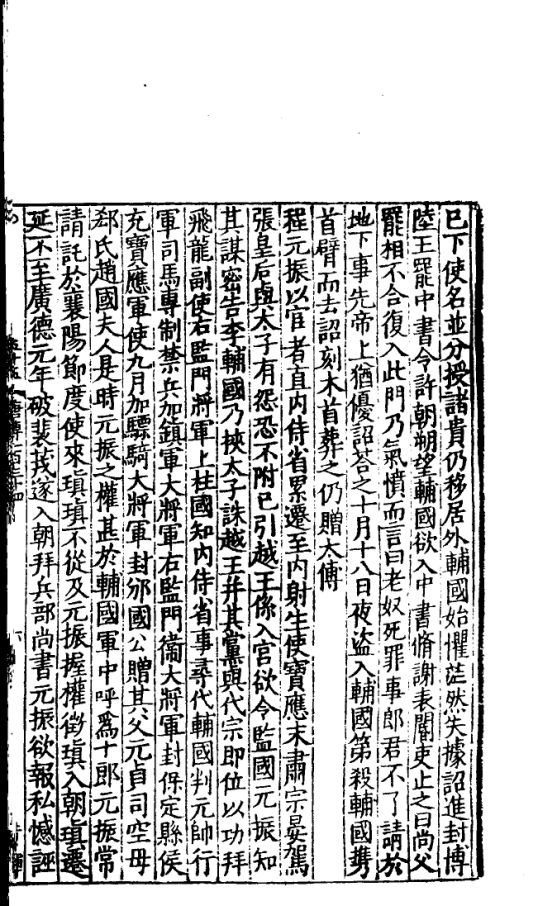 已下使名並分授諸貴仍移居外輔國始懼茫然失據詔進封博
陸王罷中書令許朝朔望輔國欲入中書脩謝表閽吏止之曰尚父
罷相不合復入此門乃氣憤而言曰老奴死罪事郎君不了請於
地下事先帝上猶優詔荅之十月十八日夜盜入輔國第殺輔國攜
首臂而去詔刻木首葬之仍贈太傅
程元振以宦者直內侍省累遷至內射生使寶應末肅宗晏駕
張皇后與太子有怨恐不附已引越王係入宮欲令監國元振知
其謀密告李輔國乃挾太子誅越王并其黨與代宗即位以功拜
飛龍副使右監門將軍上柱國知內侍省事尋代輔國判元帥行
軍司馬專制禁兵加鎮軍大將軍右監門衞大將軍封保定縣侯
充寶應軍使九月加驃騎大將軍封邠國公贈其父元貞司空母
郄氏趙國夫人是時元振之權甚於輔國軍中呼爲十郎元振常
請託於襄陽節度使來瑱瑱不從及元振握權徵瑱入朝瑱遷
延不至廣德元年破裴茂遂入朝拜兵部尚書元振欲報私憾誣